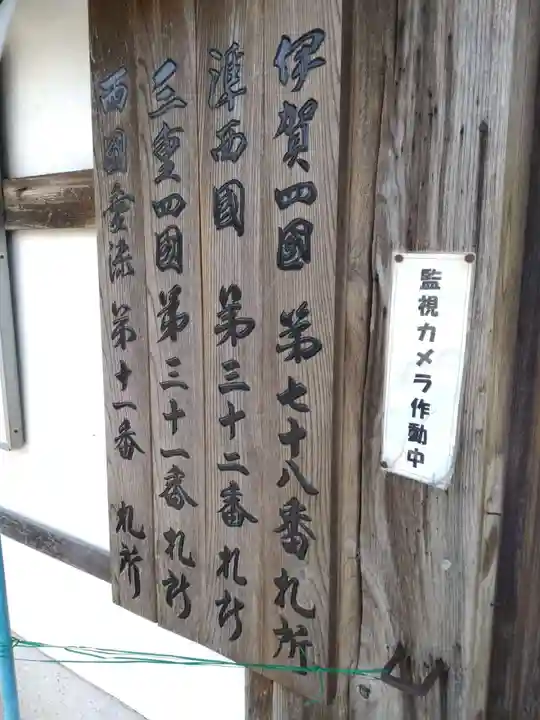 伊賀四國 第七十八番札所
準西國 第三十二番札所
三重四國 第三十一番札所
西國 第十一番 札所
監視カメラ作動中